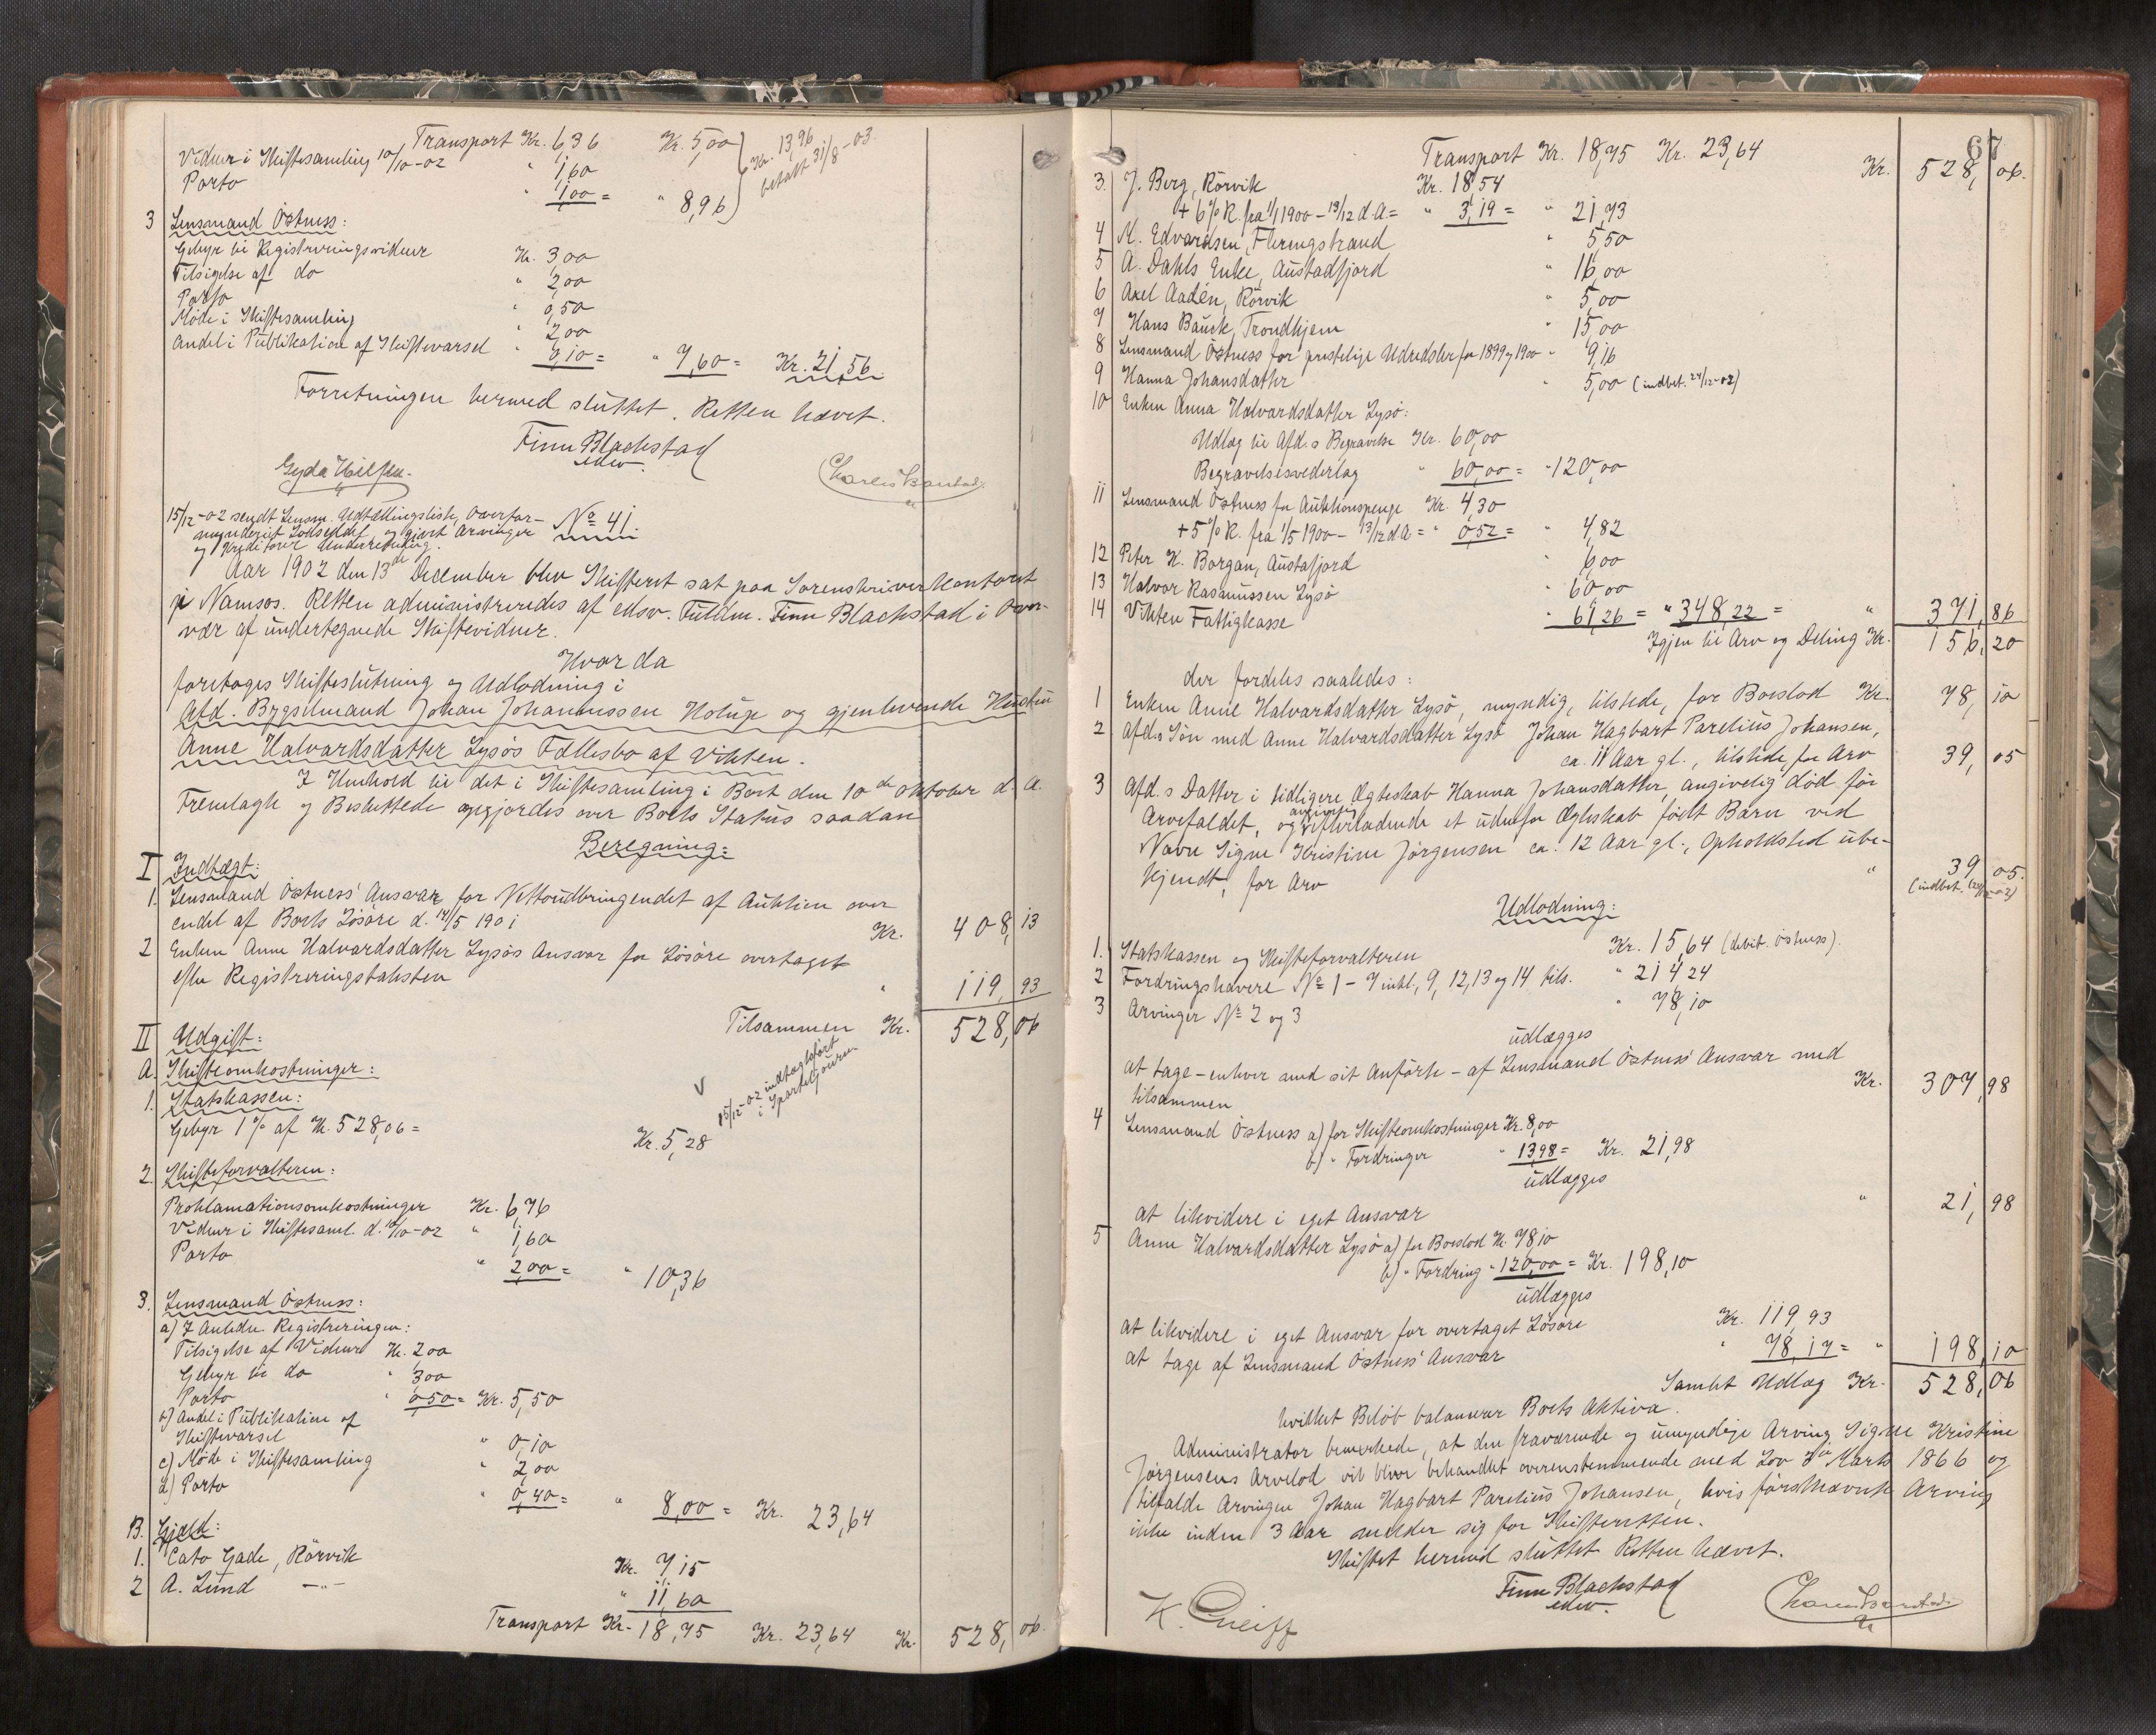 Transport Kr. 6,36 Kr. 5,00
Vidner i Skiftesamling 10/10-02 " 1,60
Porto " 1,00 = " 8,96
Kr. 13,96
betalt 31/8-03.
3 Lensmand Östness:
Gebyr til Registreringsvidner Kr. 3,00
Tilsigelse af do " 2,00
Porto " 0,50
Møde i Skiftesamling " 2,00
Andel i Publikation af Skiftevarsel " 0,10 = " 7,60 = Kr. 21,56
Forretningen hermed sluttet. Retten hævet.
Finn Blackstad
edsv.
15/12-02 sendt Lensm. Udtællingsliste, Overfor-
mynderiet Lodseddel, og givet Arvinger
og Kreditorer Underretning.
No 41.
Aar 1902 den 13de December blev Skifteret sat paa Sorenskriverkontoret
i Namsos. Retten administreredes af edsv. Fuldm. Finn Blackstad i Over-
vær af undertegnede Skiftevidner.
Hvorda
foretoges Skifteslutning og Udlodning i
Afd. Bygselmand Johan Johannessen Holup og gjenlevende Hustru
Anne Halvardsdatter Lysøs Fællesbo af Vikten.
I Henhold til det i Skiftesamling i Boet den 10de Oktober d. A.
Fremlagte og Besluttede opgjordes over Boets Status saadan
Beregning:
I Indtægt:
1. Lensmand Östness' Ansvar for Nettoudbringendet af Auktion over
endel af Boets Løsøre d. 14/5 1901 Kr. 408,13
2 Enken Anne Halvardsdatter Lysøs Ansvar for Løsøre overtaget
efter Registreringstaksten " 119,93
Tilsammen Kr. 528,06
II Udgift:
A. Skifteomkostninger:
1. Statskassen:
15/12-02 indtægtsført
i Sporteljournn.
Gebyr 1% af Kr. 528,06 = Kr. 5,28
2. Skifteforvalteren:
Proklamationsomkostninger Kr. 6,76
Vidner i Skiftesaml. d. 10/10-02 " 1,60
Porto " 2,00 = " 10,36
3. Lensmand Östness:
a) I Anledn. Registreringen:
Tilsigelse af Vidner Kr. 2,00
Gebyr til do " 3,00
Porto " 0,50 = Kr. 5,50
b) Andel i Publikation af
Skiftevarsel " 0,10
c) Møde i Skiftesamling " 2,00
d) Porto " 0,40 = " 8,00 = Kr. 23,64
B. Gjæld:
1. Cato Gade, Rörvik Kr. 7,15
2 A. Lund —"— " 11,60
Transport Kr. 18,75 Kr. 23,64 Kr. 528,06.
67
Transport Kr. 18,75 Kr. 23,64 Kr. 528,06.
3. J. Berg, Rörvik Kr. 18,54
+ 6% R. fra 1/1 1900 - 13/12 d. A. = " 3,19 = " 21,73
4 M. Edvardsen, Flerengstrand " 5,50
5 A. Dahls Enke, Austadfjord " 16,00
6 Axel Aadén, Rörvik " 5,00
7 Hans Bauck, Trondhjem " 15,00
8 Lensmand Östness for prestelige Udredsler for 1899 og 1900 " 9,16
9 Hanna Johansdatter " 5,00 (indbet. 24/12-02)
10 Enken Anna Halvardsdatter Lysø:
Udlæg til Afd.s Begravelse Kr. 60,00
Begravelsesvederlag " 60,00 = " 120,00
11 Lensmand Östness for Auktionspenge Kr. 4,30
+ 5% R. fra 1/5 1900 - 13/12 d. A = " 0,52 = " 4,82
12 Peter H. Borgan, Austafjord " 6,00
13 Halvor Rasmussen Lysø " 60,00
14 Vikten Fattigkasse " 61,26 = " 348,22 = " 371,86
Igjen til Arv og Deling Kr. 156,20
der fordeles saaledes:
1 Enken Anne Halvardsdatter Lysø, myndig, tilstede, for Boeslod Kr. 78,10
2 Afd.s Søn med Anne Halvardsdatter Lysø Johan Hagbart Parelius Johansen,
ca. 11 Aar gl., tilstede, for Arv 39,05
3 Afd.s Datter i tidligere Ægteskab Hanna Johansdatter, angivelig død før
Arvefaldet, og angivelig efterladende et udenfor Ægteskab født Barn ved
Navn Signe Kristine Jörgensen ca. 12 Aar gl., Opholdsted ube-
kjendt, for Arv " 39,05.
(indbet. 24/12-02)
Udlodning:
1. Statskassen og Skifteforvalteren Kr. 15,64 (debit. Östness).
2 Fordringshavere No 1 - 7 inkl., 9, 12, 13 og 14 tils. " 214 24
3 Arvinger No 2 og 3 " 78,10
udlægges
at tage - enhver med sit Anförte - af Lensmand Östness' Ansvar med
tilsammen Kr. 307,98
4 Lensmand Östness a) for Skifteomkostninger Kr. 8,00
b) " Fordringer " 13,98 = Kr. 21,98
udlægges
at likvidere i eget Ansvar " 21,98
5 Anne Halvardsdatter Lysø a) for Boeslod Kr. 78,10
b) " Fordring " 120,00 = Kr. 198,10
udlægges
at likvidere i eget Ansvar for overtaget Løsøre Kr. 119,93
at tage af Lensmand Östness' Ansvar " 78,17 = " 198,10
Samlet Udlæg Kr. 528,06
hvilket Beløb balancerer Boets Aktiva.
Administrator bemerkede, at den fraværende og umyndige Arving Signe Kristine
Jörgensens Arvelod vil blive behandlet overensstemmende med Lov 3die Marts 1866 og
tilfalde Arvingen Johan Hagbart Parelius Johansen, hvis førstnævnte Arving
ikke inden 3 Aar melder sig for Skifteretten.
Skiftet hermed sluttet Retten hævet.
Finn Blackstad
edsv.